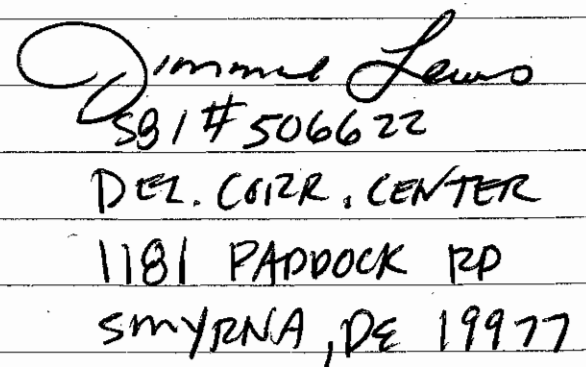 Jimmie Lewis
SBI # 506622
DEL. CORR. CENTER
1181 PADDOCK RD
SMYRNA, DE 19977